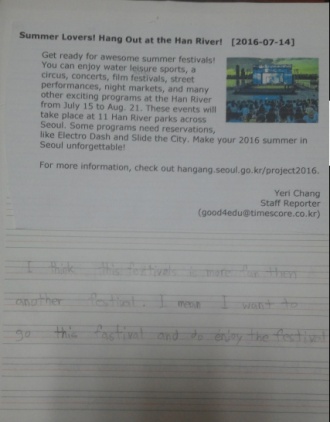 Summer Lovers! Hang Out at the Han River! [2016-07-14]
Get ready for awesome summer festivals!
You can enjoy water leisure sports, a
circus, concerts, film festivals, street
performances, night markets, and many
other exciting programs at the Han River
from July 15 to Aug. 21. These events will
take place at 11 Han River parks across
Seoul. Some programs need reservations,
like Electro Dash and Slide the City. Make your 2016 summer in
Seoul unforgettable!
For more information, check out hangang.seoul.go.kr/project2016.
Yeri Chang
Staff Reporter
(good4edu@timescore.co.kr)
I think this festivals is more fun then
another festival. I mean I want to
go this fastival and do enjoy the festival